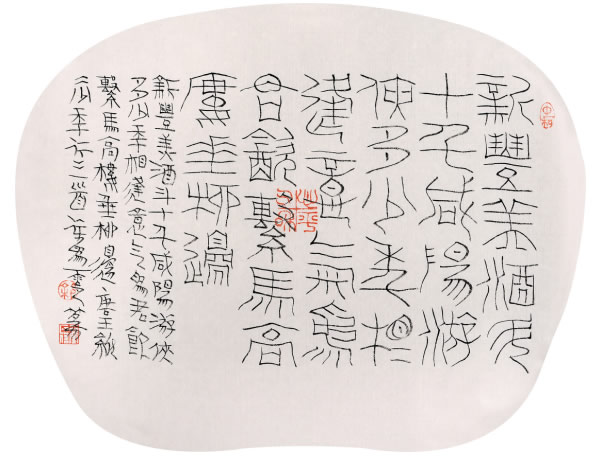 新豐美酒斗
十千咸陽游
俠多少年相
逢意氣為
君飲繫馬高
樓垂柳邊
新豐美酒斗十千咸陽游俠
多少年相逢意氣為君飲
繫馬高樓垂柳邊唐王維
少年行